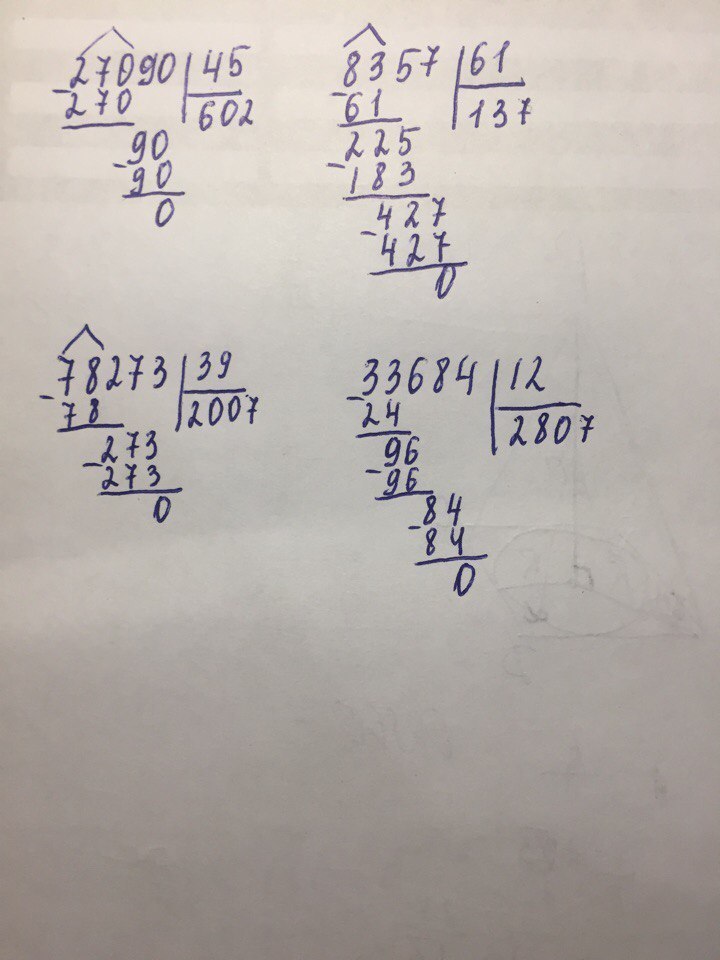 27090 45
-270 602
90
-90
0
8357 61
-61 137
225
-183
427
-427
0
78273 39
-78 2007
273
-273
0
33684 12
-24 2807
96
-96
84
-84
0